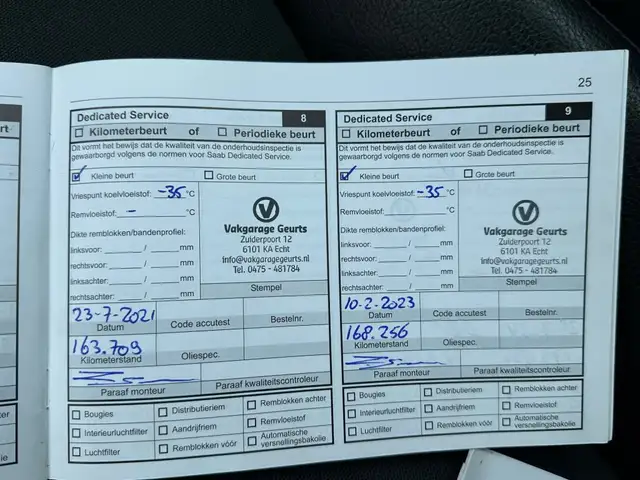 25
Dedicated Service 8
Kilometerbeurt of Periodieke beurt
Dit vormt het bewijs dat de kwaliteit van de onderhoudsinspectie is
gewaarborgd volgens de normen voor Saab Dedicated Service.
Kleine beurt Grote beurt
Vriespunt koelvloeistof: -35 °C
Remvloeistof: - °C
Dikte remblokken/bandenprofiel:
linksvoor: / mm
rechtsvoor: / mm
linksachter: / mm
rechtsachter: / mm
Vakgarage Geurts
Zuiderpoort 12
6101 KA Echt
info@vakgaragegeurts.nl
Tel. 0475 - 481784
Stempel
23-7-2021
Datum Code accutest Bestelnr.
163.709
Kilometerstand Oliespec.
Paraaf monteur Paraaf kwaliteitscontroleur
Bougies Distributieriem Remblokken achter
Interieurluchtfilter Aandrijfriem Remvloeistof
Luchtfilter Remblokken vóór Automatische
versnellingsbakolie
Dedicated Service 9
Kilometerbeurt of Periodieke beurt
Dit vormt het bewijs dat de kwaliteit van de onderhoudsinspectie is
gewaarborgd volgens de normen voor Saab Dedicated Service.
Kleine beurt Grote beurt
Vriespunt koelvloeistof: -35 °C
Remvloeistof: °C
Dikte remblokken/bandenprofiel:
linksvoor: / mm
rechtsvoor: / mm
linksachter: / mm
rechtsachter: / mm
Vakgarage Geurts
Zuiderpoort 12
6101 KA Echt
info@vakgaragegeurts.nl
Tel. 0475 - 481784
Stempel
10-2-2023
Datum Code accutest Bestelnr.
168.256
Kilometerstand Oliespec.
Paraaf monteur Paraaf kwaliteitscontroleur
Bougies Distributieriem Remblokken achter
Interieurluchtfilter Aandrijfriem Remvloeistof
Luchtfilter Remblokken vóór Automatische
versnellingsbakolie